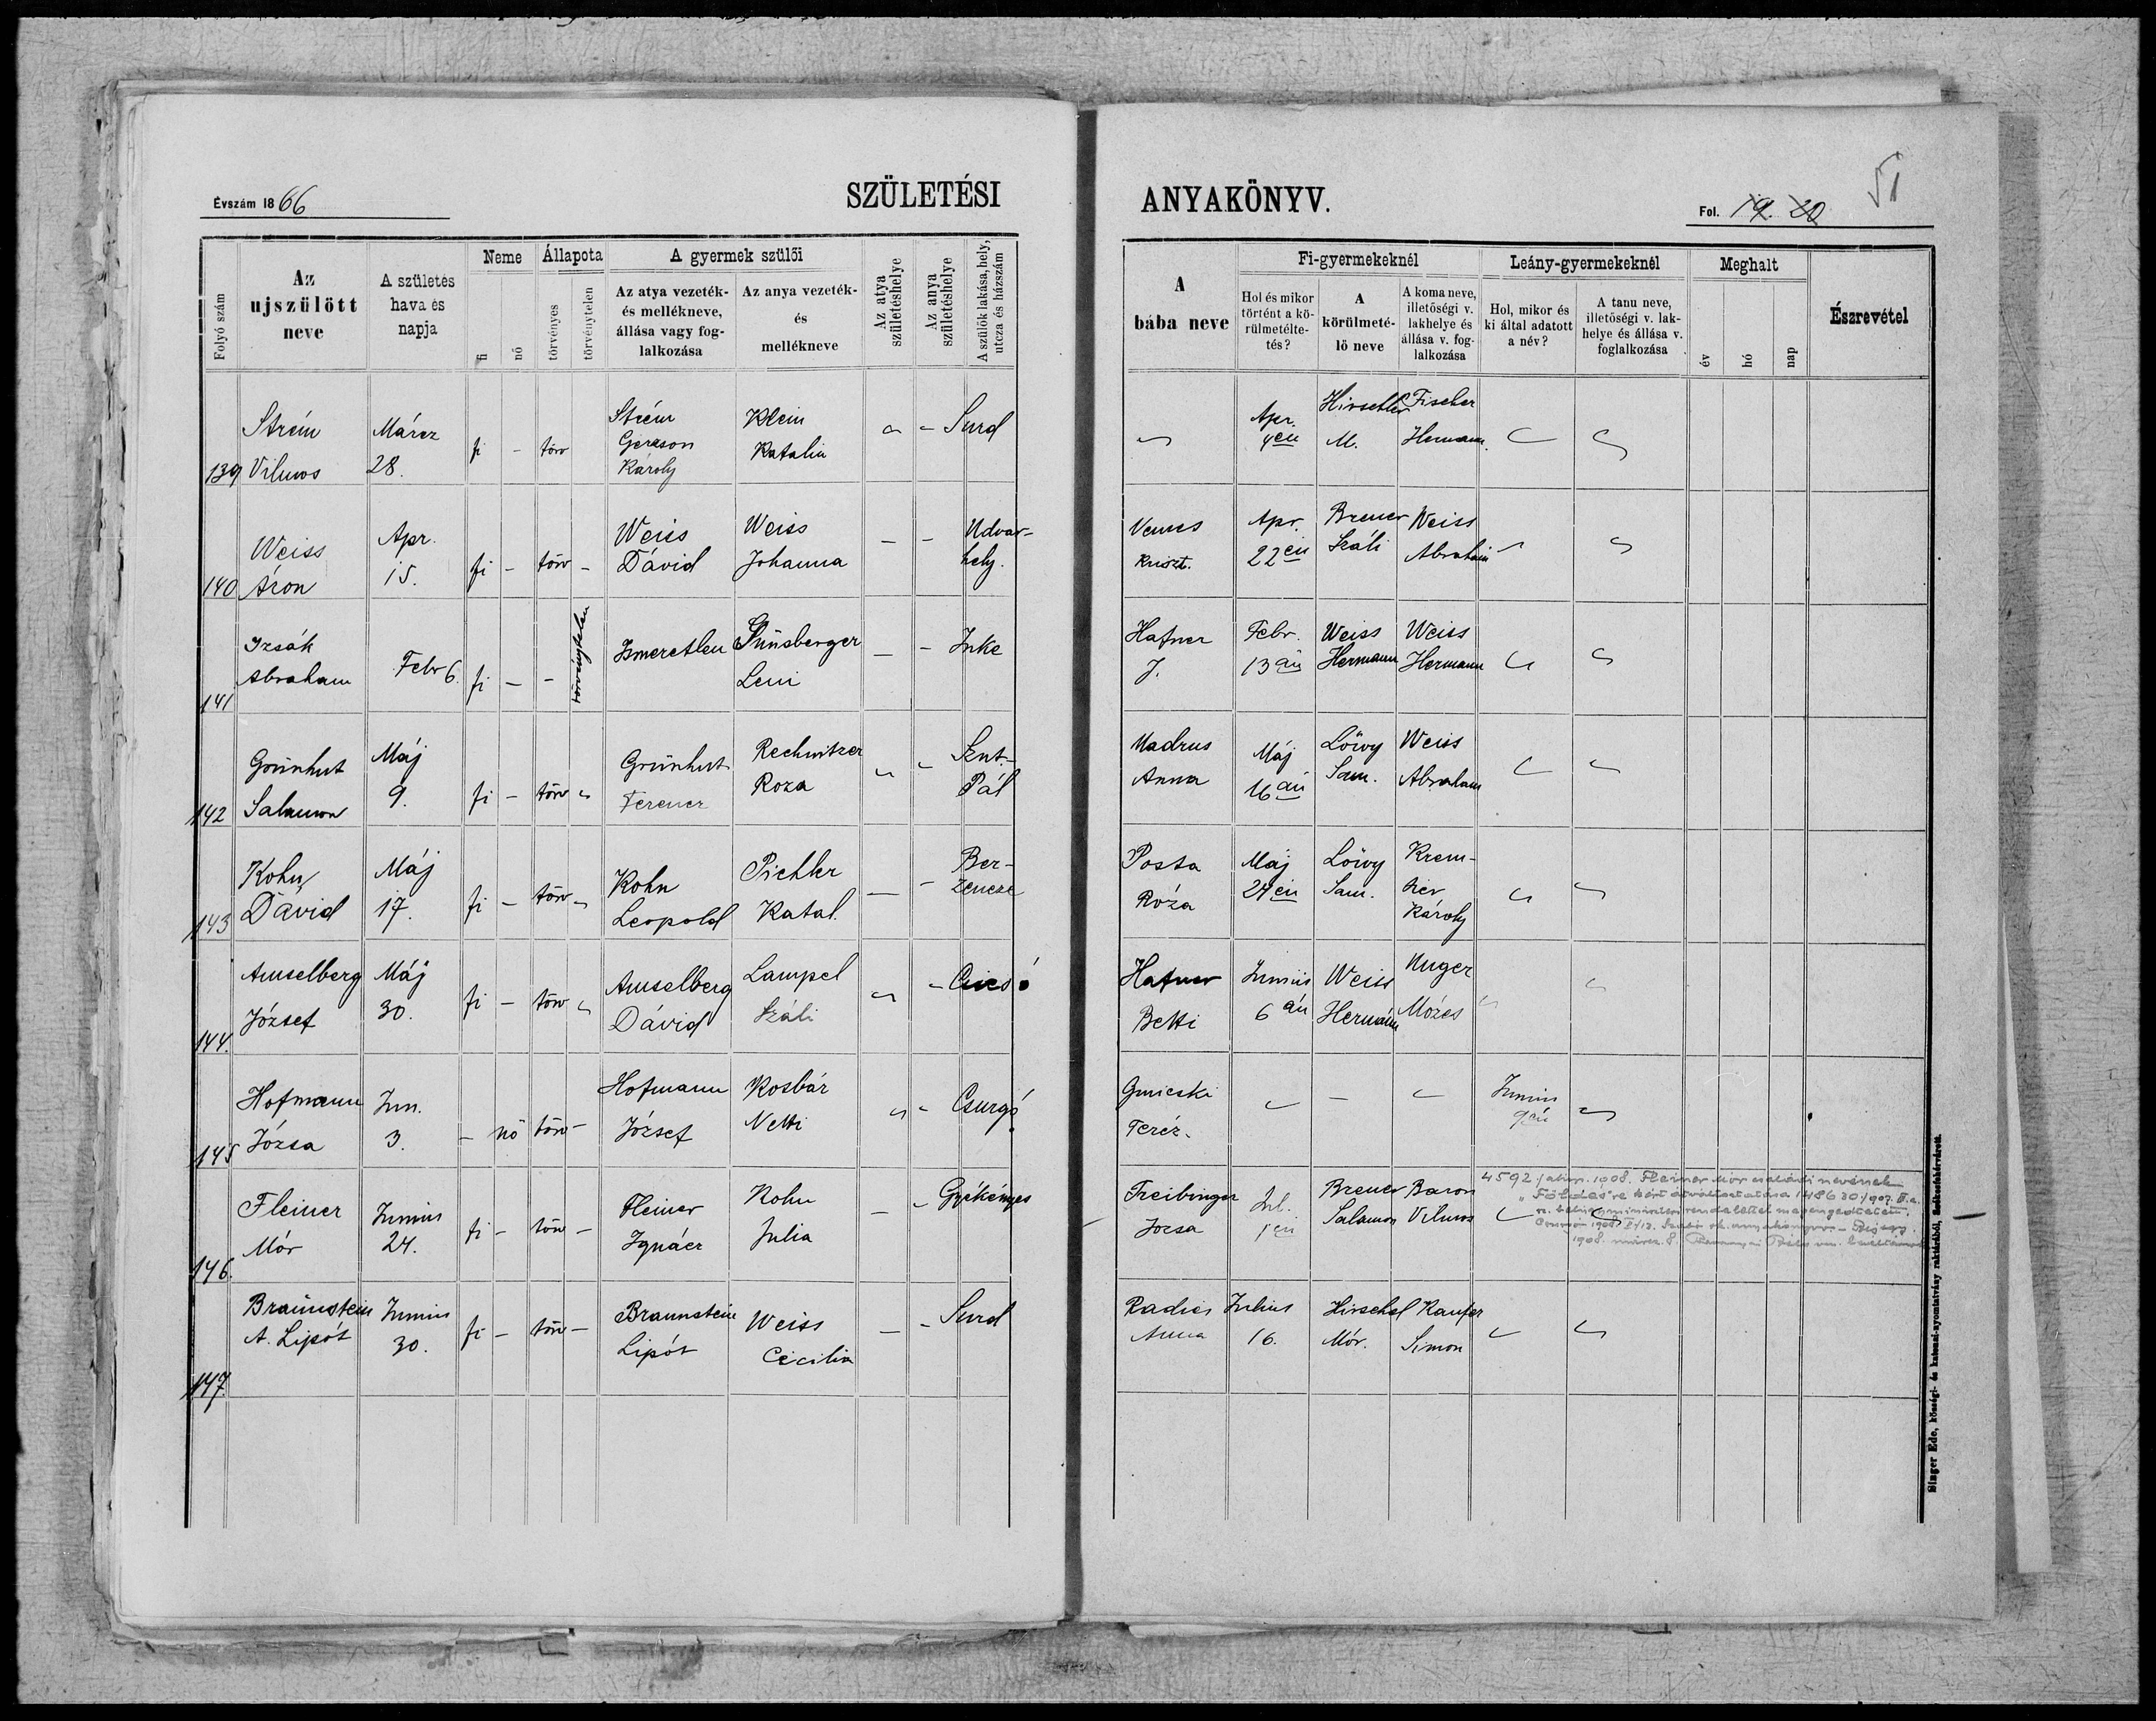 Évszám 1866
SZÜLETÉSI
ANYAKÖNYV.
Fol. 19. 20
51
Folyó szám
Az ujszülött neve
A születés hava és napja
Neme
fi
nö
Állapota
törvényes
törvénytelen
A gyermek szülői
Az atya vezeték- és mellékneve, állása vagy foglalkozása
Az anya vezeték- és mellékneve
Az atya születéshelye
Az anya születéshelye
A szülők lakása, hely, utcza és házszám
A bába neve
Fi-gyermekeknél
Hol és mikor történt a körülmetéltetés?
A körülmetélő neve
A koma neve, illetőségi v. lakhelye és állása v. foglalkozása
Leány-gyermekeknél
Hol, mikor és ki által adatott a név?
A tanu neve, illetőségi v. lakhelye és állása v. foglalkozása
Meghalt
év
hó
nap
Észrevétel
139 Strém Vilmos Márcz 28. fi - törv Strém Gerson Károly Klein Katalin - Surd Apr. 4én Hirschler M. Fischer Hermann
140 Weiss Áron Apr. 15. fi - törv - Weiss Dávid Weiss Johanna - - Udvarhely. Kriszt. Apr. 22én Breuer Száli Weiss Abrahám
141 Izsák Abraham Febr 6. fi - - törvénytelen Ismeretlen Leni - - Inke Hafner J. Febr. 13án Weiss Hermann Weiss Hermann
142 Grünhut Salamon Máj 9. fi - törv Grünhut Ferencz Rechnitzer Roza Sznt.-Pál Madrus Anna Máj 16án Löwy Sam. Weiss Abraham
143 Kohn Dávid Máj 17. fi - törv Kohn Leopold Pichler Katal. - - Berzencze Posta Róza Máj 24én Löwy Sam. Krem- Károly
144. Amselberg József Máj 30. fi - törv Amselberg Dávid Lampel Száli - Csicsó Hafner Betti Junius 6án Weiss Hermánn Unger Mózes
145 Hofmann Józsa Jun. 3. - nö törv - Hofmann József Kosbár Netti Csurgó Teréz. - Junius 9én
146. Fleiner Mór Junius 24. fi - törv - Fleiner Ignácz Kohn Julia - - Gyékényes Treibinger Jozsa Jul. 1én Breuer Salamon Baron Vilmos
4592/ 1908. Fleiner Mór családi nevének
"Földes"re kért átváltoztatása 148630/907. III.a.
rendelettel megengedtetett.
1908. márcz. 8.
147. Braunstein A. Lipót Junius 30. fi - törv - Braunstein Lipót Weiss Cecilia - - Surd Radics Anna Julius 16. Hirschel Mór. Kaufer Simon
Singer Ede, községi- és katonai-nyomtatvány raktárából, Székesfehérvárott.